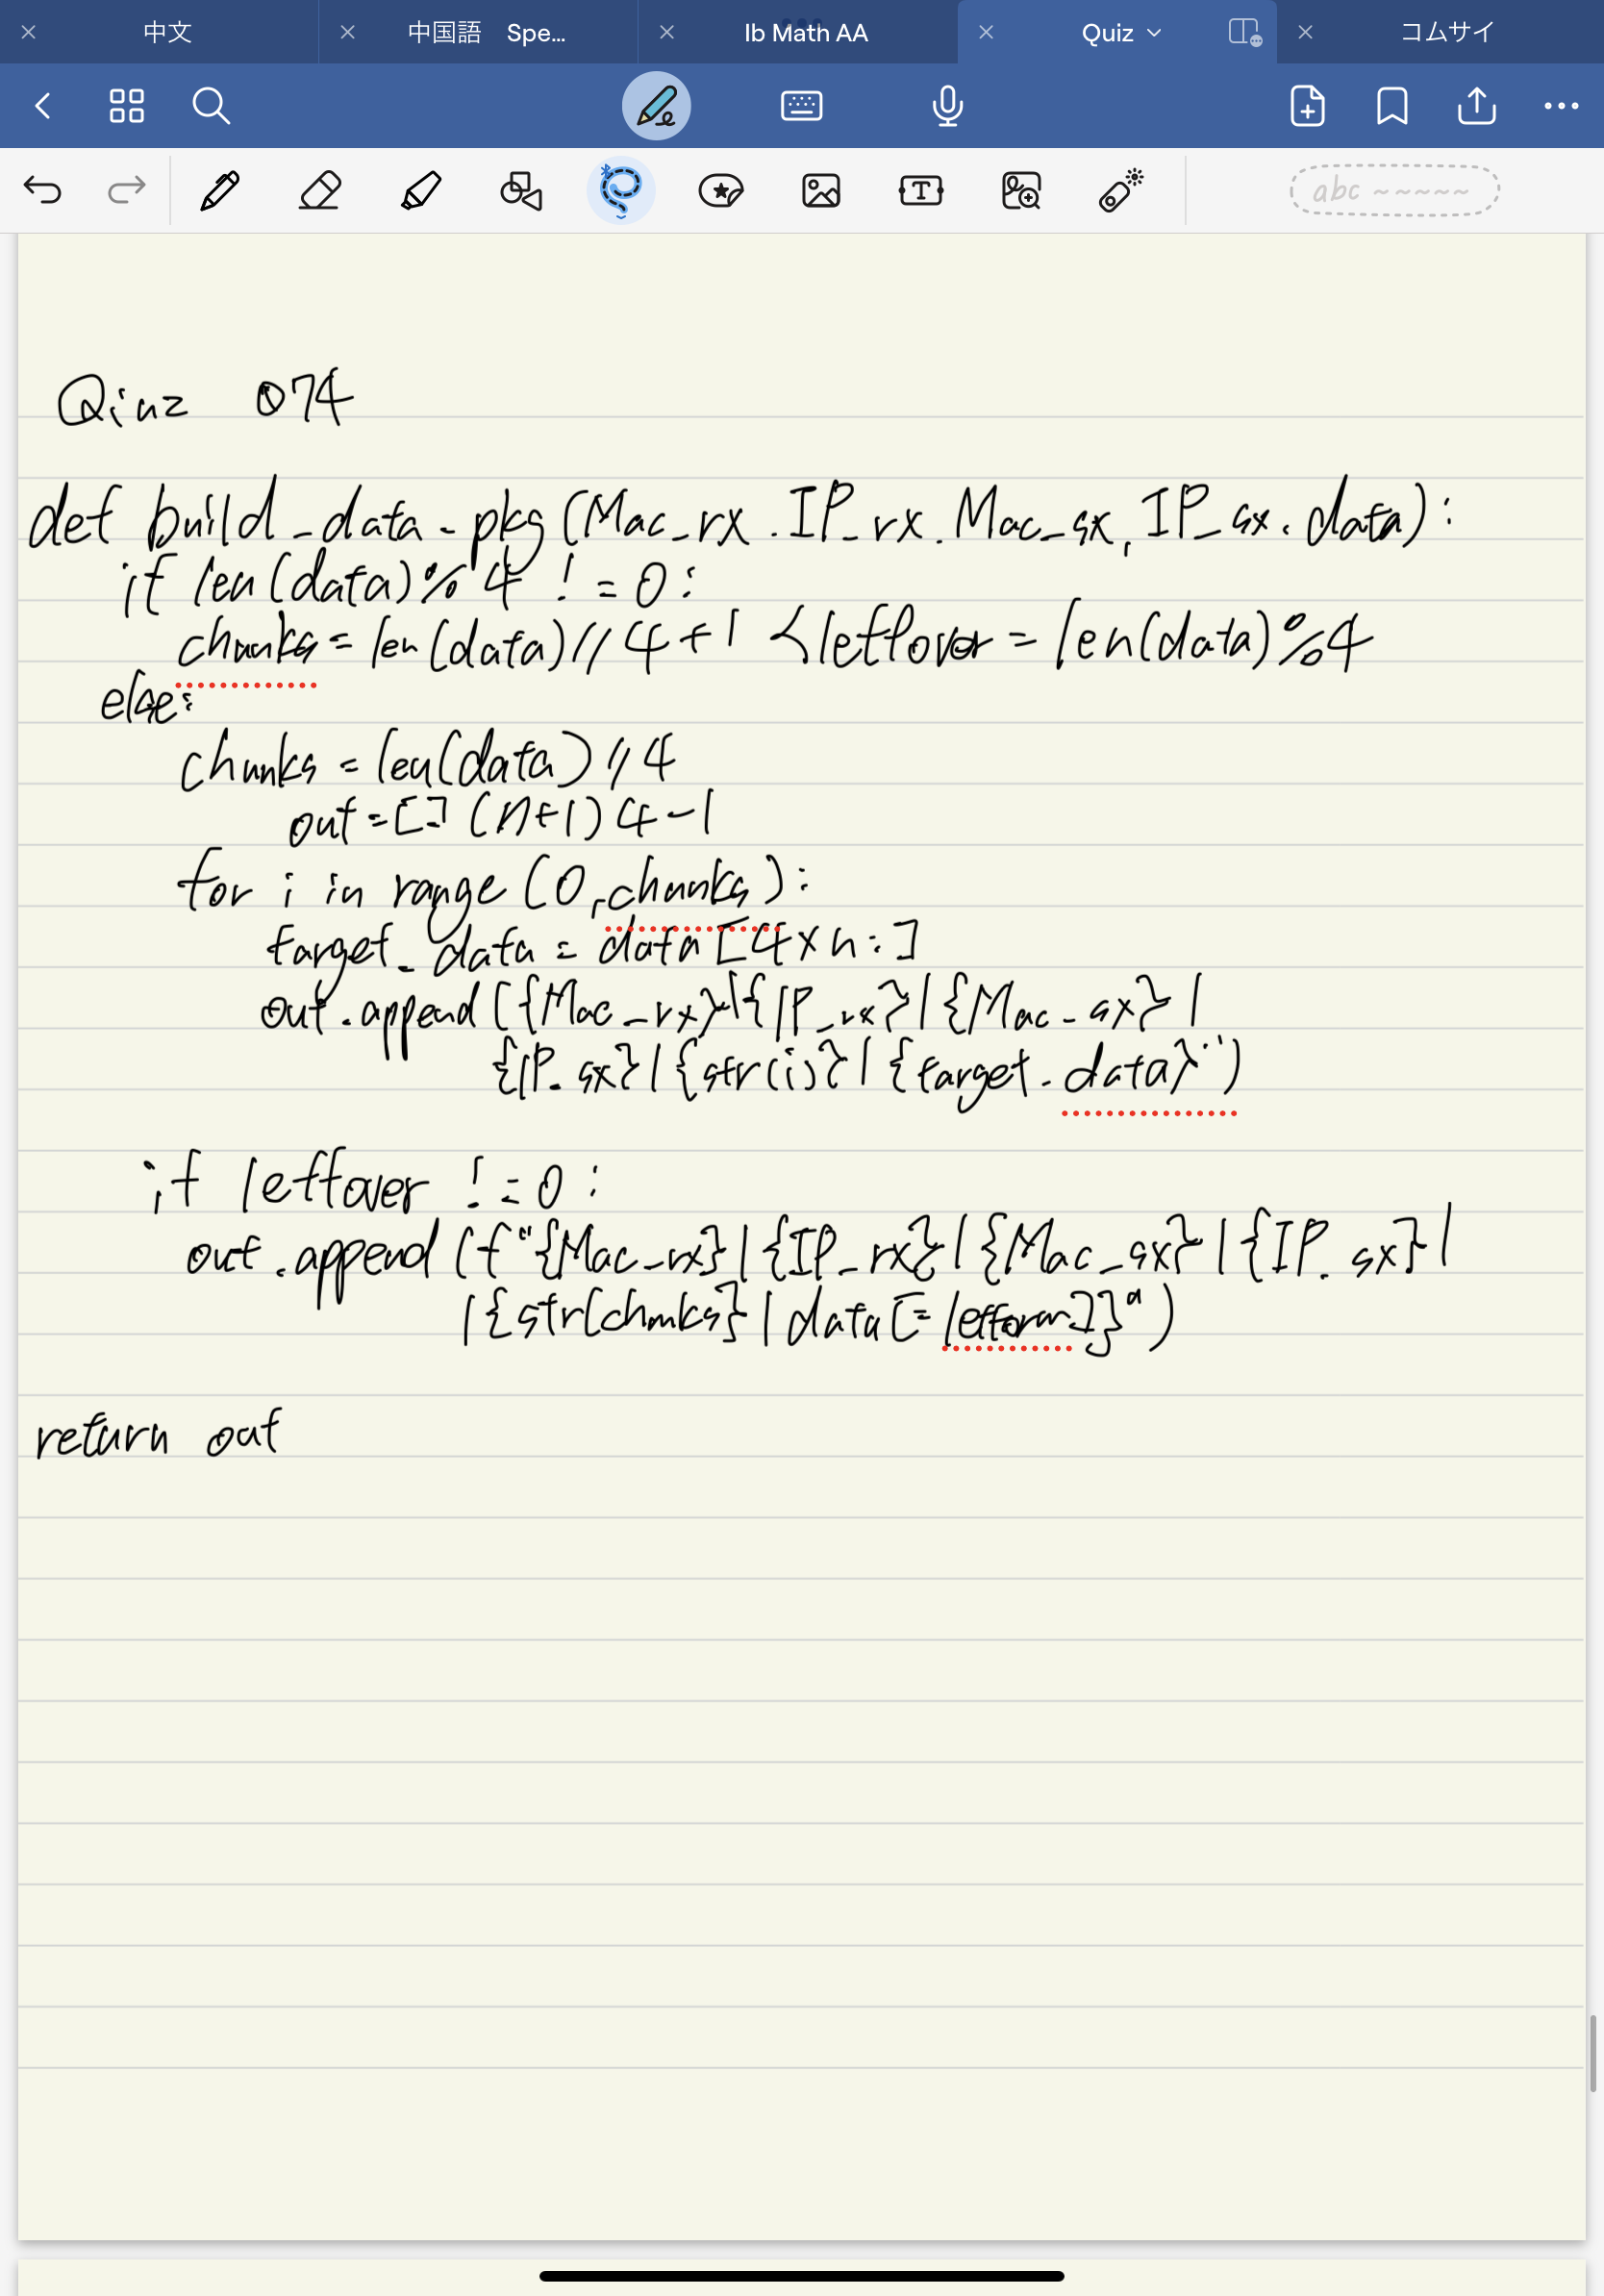 中文
中国語 Spe...
Ib Math AA
Quiz
コムサイ
abc
Qinz 074
def build_data_pkg(Mac_rx.IP_rx.Mac_sx,IP_sx.data):
if len(data)%4 !=0:
chunks=len(data)//4+1 <leftover=len(data)%4
else:
chunks=len(data)//4
out=[] (n+1)4-1
for i in range(0,chunks):
target_data=data[4×n:]
out.append({Mac_rx}|{IP_rx}|{Mac_sx}|
{IP.sx}|{str(i)}|{target.data}")
if leftover !=0:
out.append(f"{Mac_rx}|{IP_rx}|{Mac_sx}|{IP.sx}|
|{str(chunks}|data[=leftover]}")
return out